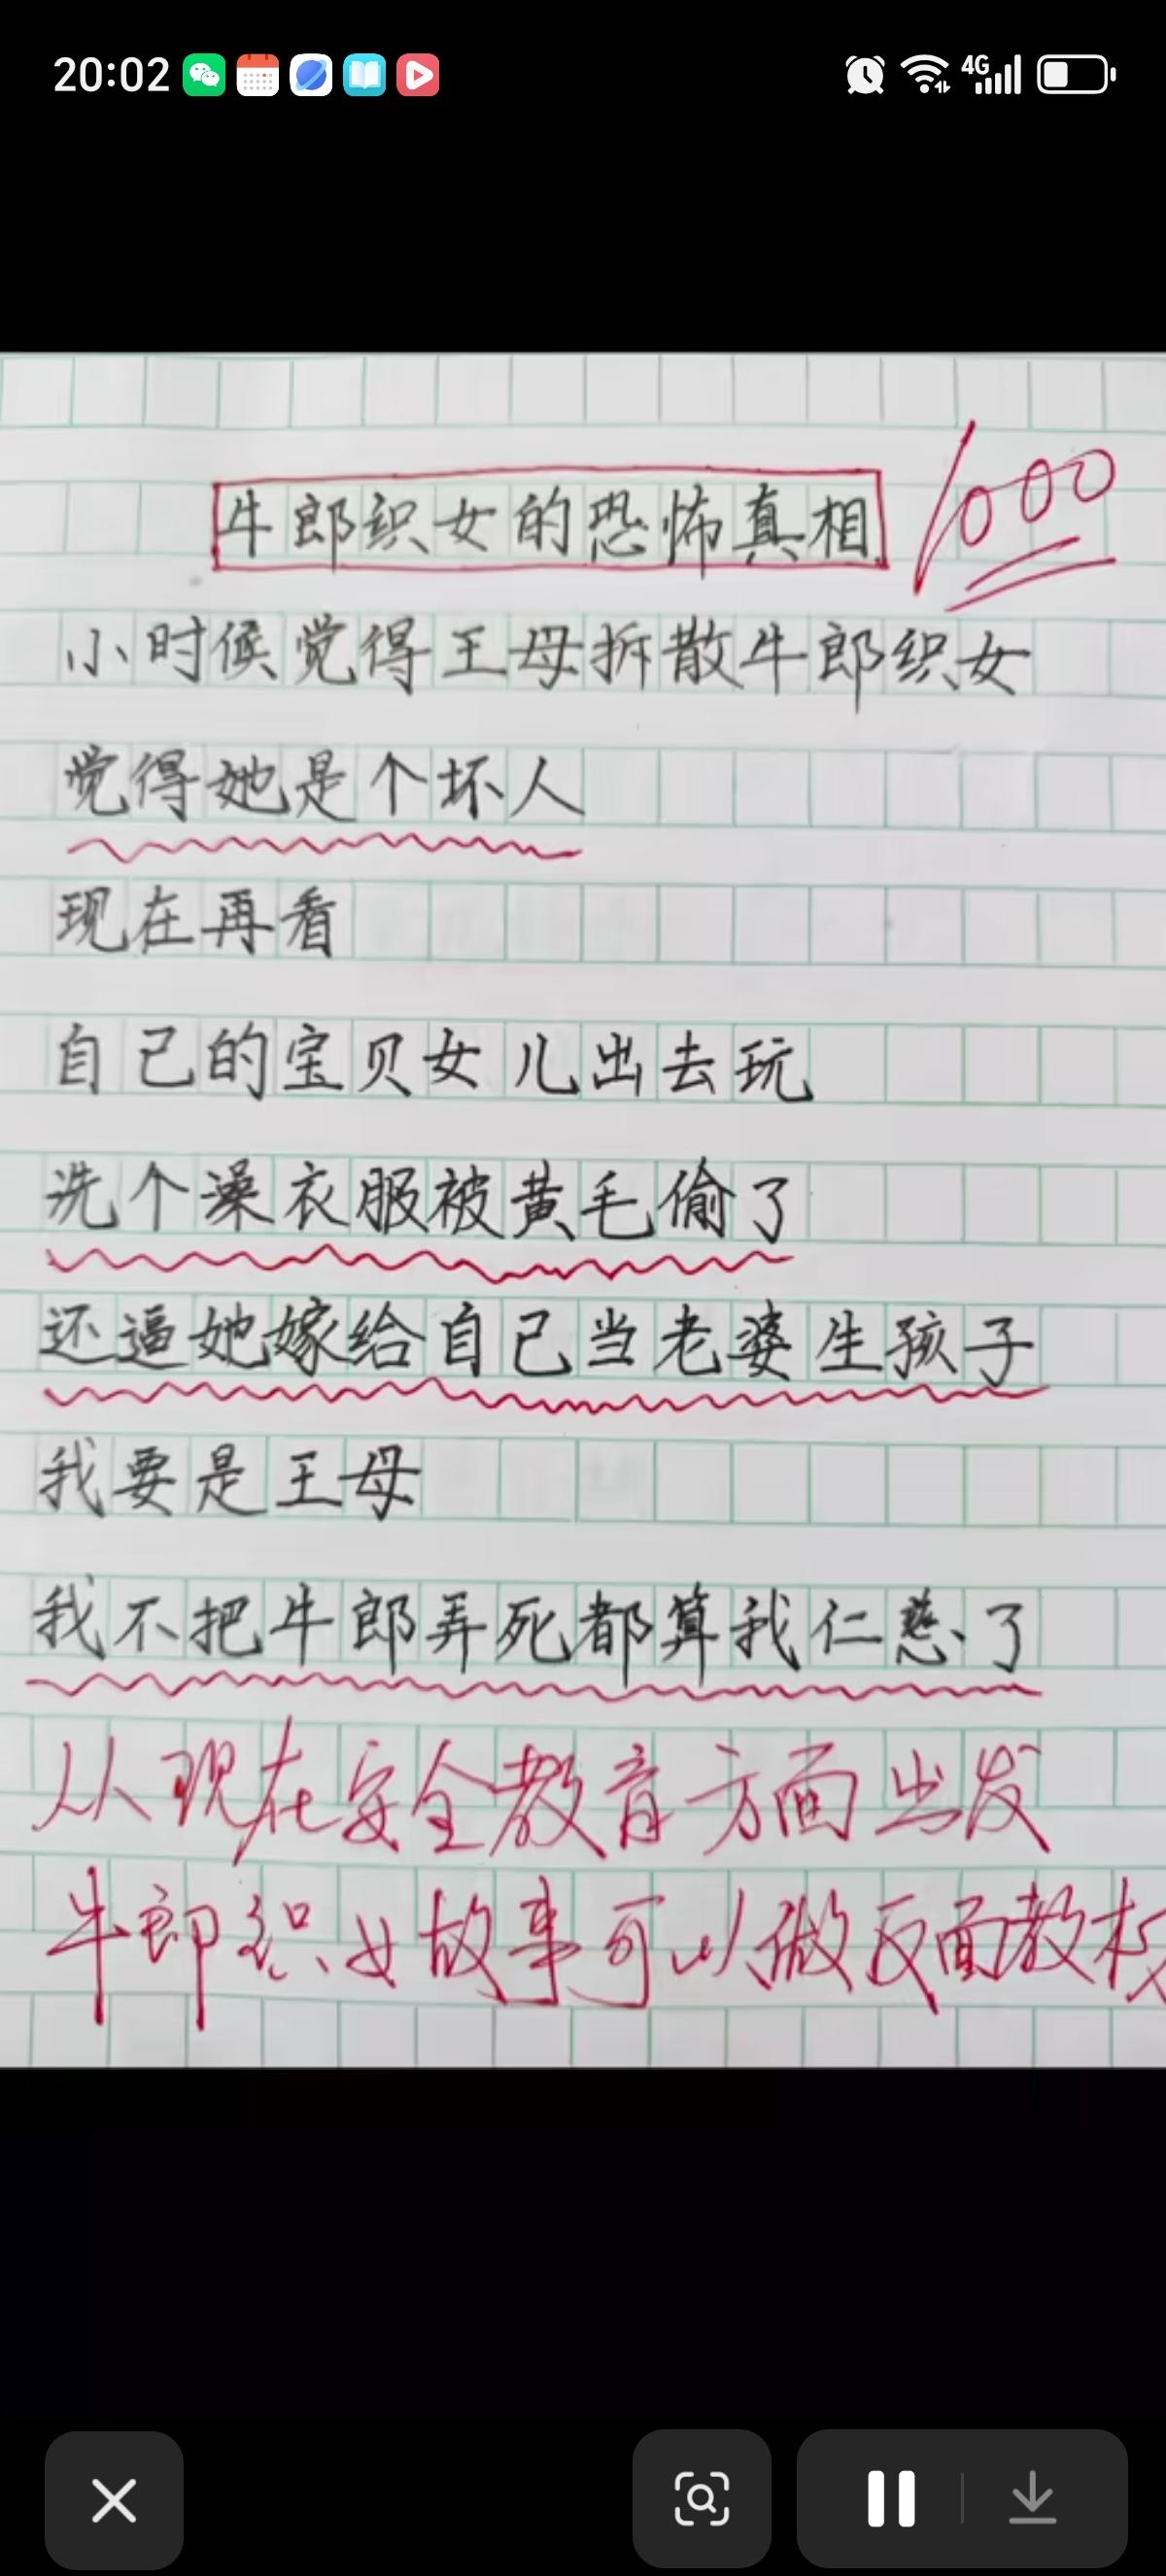 20:02
4G
牛郎织女的恐怖真相
1000
小时候觉得王母拆散牛郎织女
觉得她是个坏人
现在再看
自己的宝贝女儿出去玩
洗个澡衣服被黄毛偷了
还逼她嫁给自己当老婆生孩子
我要是王母
我不把牛郎弄死都算我仁慈了
从现在安全教育方面出发
牛郎织女故事可以做反面教材